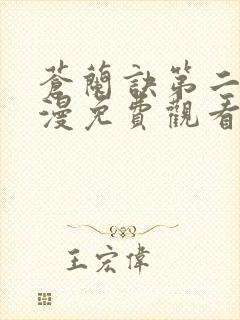 蒼蘭訣第二
漫免費觀看
王宏偉